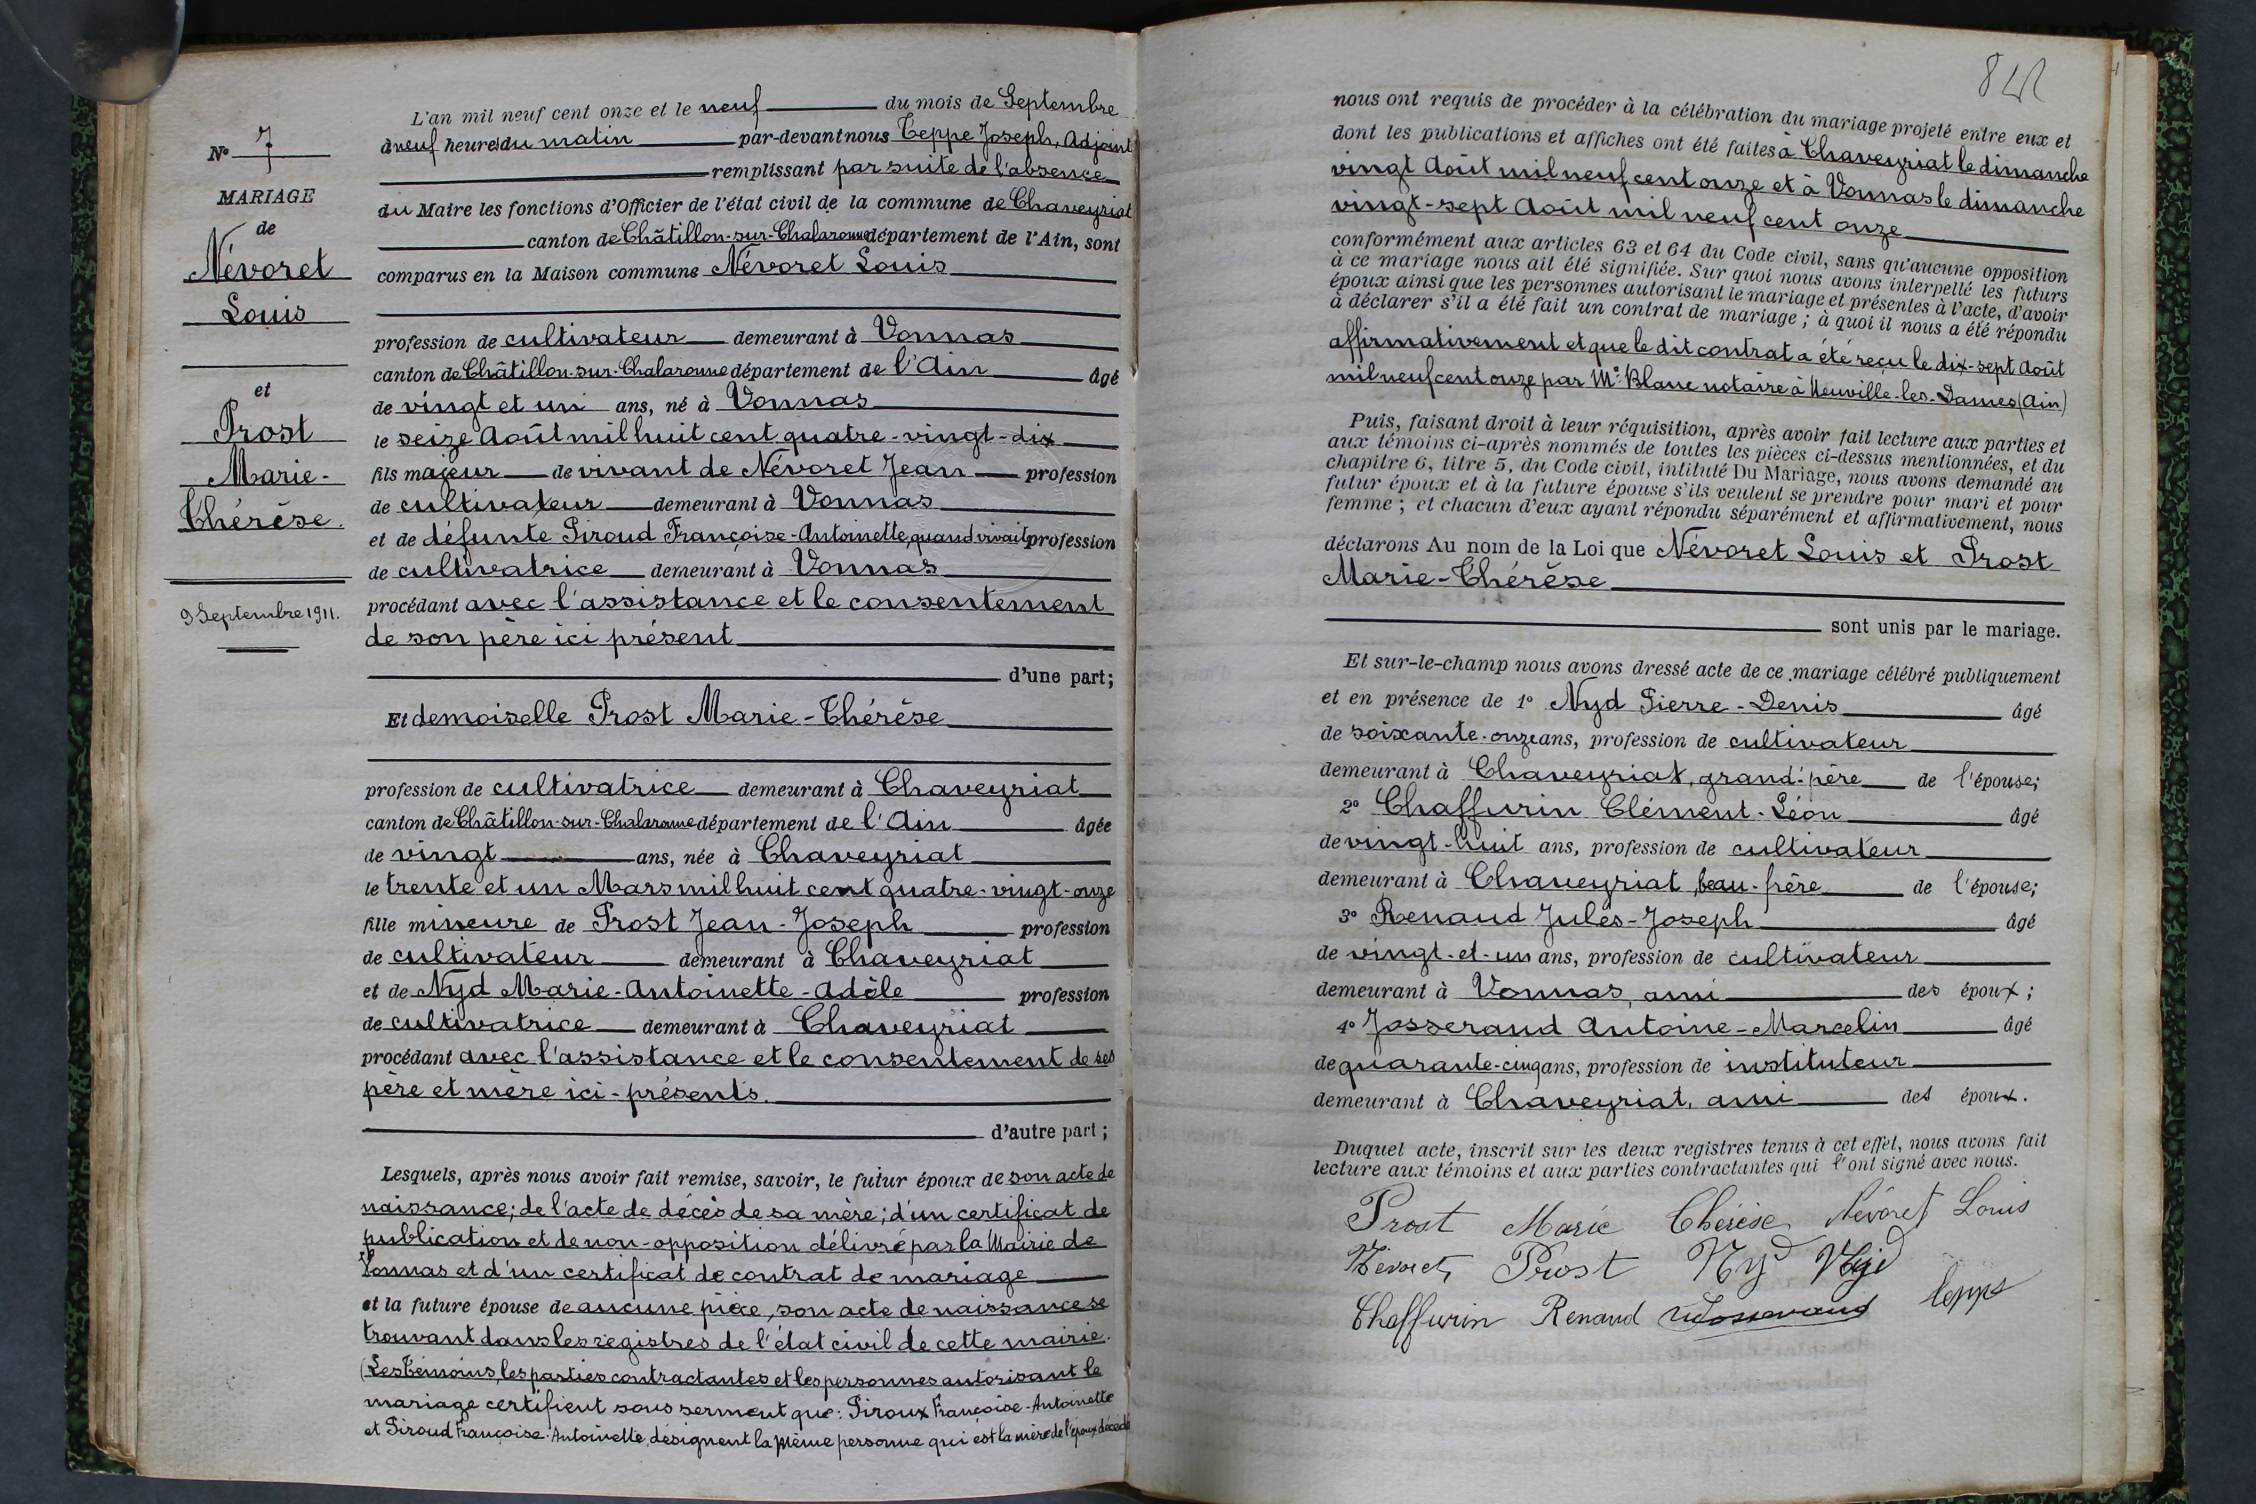 L'an mil neuf cent onze et le neuf du mois de Septembre
à neuf heures du matin par-devant nous Teppe Joseph, Adjoint
remplissant par suite de l'absence
du Maire les fonctions d'Officier de l'état civil de la commune de Chaveyriat
canton de Châtillon-sur-Chalaronne département de l'Ain, sont
comparus en la Maison commune Névoret Louis
profession de cultivateur demeurant à Vonnas
canton de Châtillon-sur-Chalaronne département de l'Ain âgé
de vingt et un ans, né à Vonnas
le seize Août mil huit cent quatre-vingt-dix
fils majeur de vivant de Névoret Jean profession
de cultivateur demeurant à Vonnas
et de défunte Piroud Françoise-Antoinette, quand vivait profession
de cultivatrice demeurant à Vonnas
procédant avec l'assistance et le consentement
de son père ici présent
d'une part;
Et demoiselle Prost Marie-Thérèse
profession de cultivatrice demeurant à Chaveyriat
canton de Châtillon-sur-Chalaronne département de l'Ain âgée
de vingt ans, née à Chaveyriat
le trente et un Mars mil huit cent quatre-vingt-onze
fille mineure de Prost Jean-Joseph profession
de cultivateur demeurant à Chaveyriat
et de Nyd Marie-Antoinette-Adèle profession
de cultivatrice demeurant à Chaveyriat
procédant avec l'assistance et le consentement de ses
père et mère ici-présents.
d'autre part;
Lesquels, après nous avoir fait remise, savoir, le futur époux de son acte de
naissance; de l'acte de décès de sa mère; d'un certificat de
publication et de non-opposition délivré par la Mairie de
Vonnas et d'un certificat de contrat de mariage
et la future épouse de aucune pièce, son acte de naissance se
trouvant dans les registres de l'état civil de cette mairie.
(Les témoins, les parties contractantes et les personnes autorisant le
mariage certifient sous serment que: Piroux Françoise-Antoinette
et Piroud Françoise-Antoinette, désignent la même personne qui est la mère de l'époux décédée
N° 7
MARIAGE
de
Névoret
Louis
et
Prost
Marie-
Thérèse.
9 Septembre 1911.
nous ont requis de procéder à la célébration du mariage projeté entre eux et
dont les publications et affiches ont été faites à Chaveyriat le dimanche
vingt Août mil neuf cent onze et à Vonnas le dimanche
vingt-sept Août mil neuf cent onze
conformément aux articles 63 et 64 du Code civil, sans qu'aucune opposition
à ce mariage nous ait été signifiée. Sur quoi nous avons interpellé les futurs
époux ainsi que les personnes autorisant le mariage et présentes à l'acte, d'avoir
à déclarer s'il a été fait un contrat de mariage; à quoi il nous a été répondu
affirmativement et que le dit contrat a été reçu le dix-sept Août
mil neuf cent onze par Me Blanc notaire à Neuville-les-Dames (Ain)
Puis, faisant droit à leur réquisition, après avoir fait lecture aux parties et
aux témoins ci-après nommés de toutes les pièces ci-dessus mentionnées, et du
chapitre 6, titre 5, du Code civil, intitulé Du Mariage, nous avons demandé au
futur époux et à la future épouse s'ils veulent se prendre pour mari et pour
femme; et chacun d'eux ayant répondu séparément et affirmativement, nous
déclarons Au nom de la Loi que Névoret Louis et Prost
Marie-Thérèse
sont unis par le mariage.
Et sur-le-champ nous avons dressé acte de ce mariage célébré publiquement
et en présence de 1° Nyd Pierre-Denis âgé
de soixante-onze ans, profession de cultivateur
demeurant à Chaveyriat, grand-père de l'épouse;
2° Chaffurin Clément-Léon âgé
de vingt-huit ans, profession de cultivateur
demeurant à Chaveyriat, beau-frère de l'épouse;
3° Renaud Jules-Joseph âgé
de vingt-et-un ans, profession de cultivateur
demeurant à Vonnas, ami des époux;
4° Josserand Antoine-Marcelin âgé
de quarante-cinq ans, profession de instituteur
demeurant à Chaveyriat, ami des époux.
Duquel acte, inscrit sur les deux registres tenus à cet effet, nous avons fait
lecture aux témoins et aux parties contractantes qui l'ont signé avec nous.
Prost Marie Thérèse Névoret Louis
Névoret Prost Nyd Nyd
Chaffurin Renaud Josserand Teppe